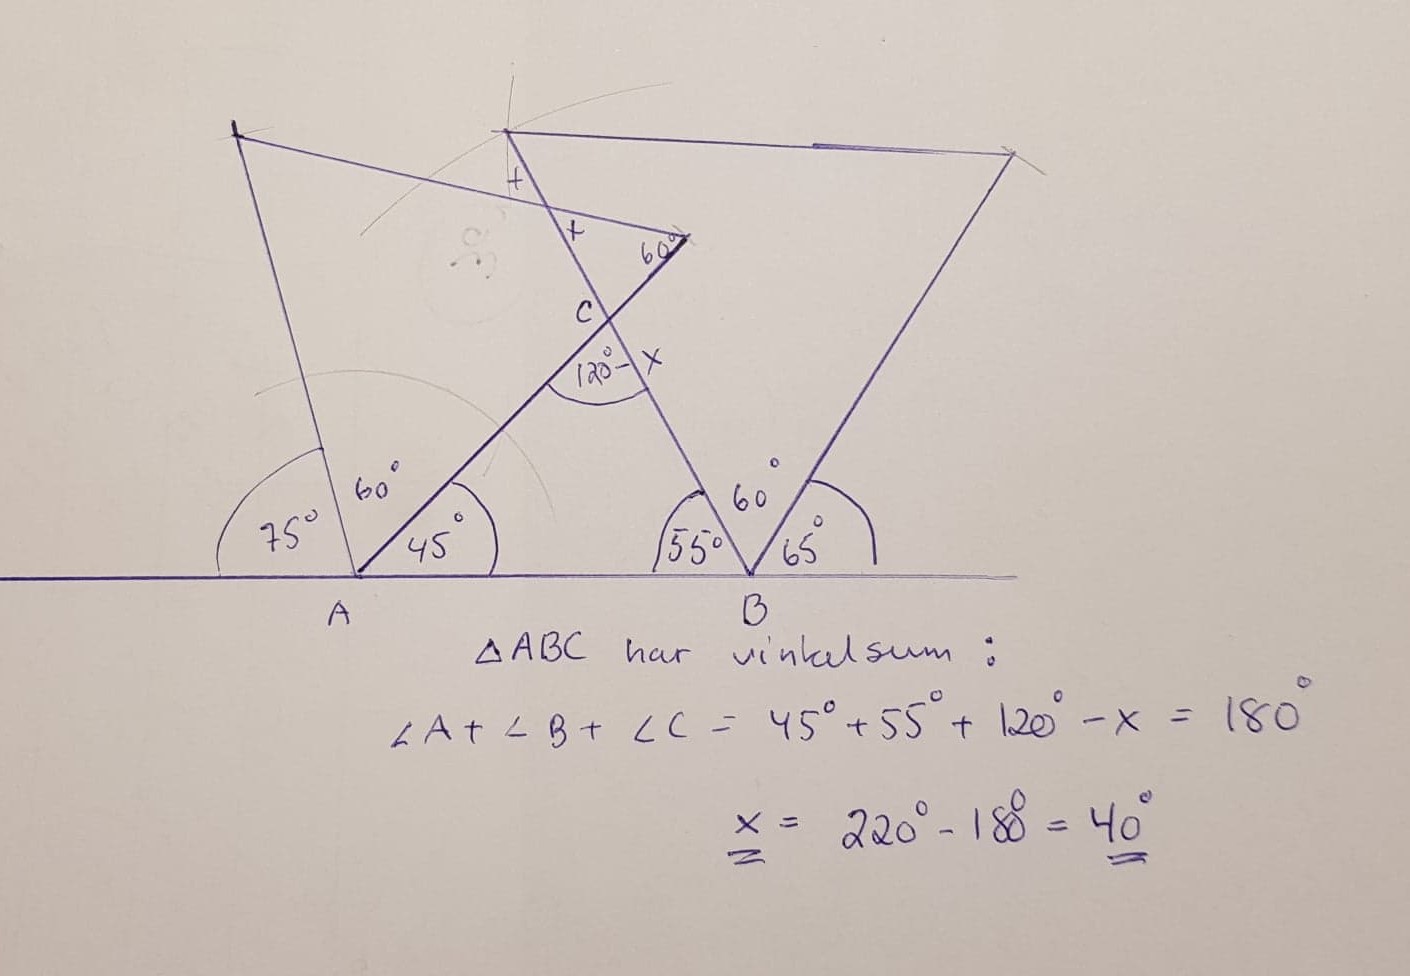 +
+
60°
C
120° - x
60°
75°
45°
60°
55°
65°
A
B
△ABC har vinkelsum :
∠A + ∠B + ∠C = 45° + 55° + 120° - x = 180°
x = 220° - 180° = 40°